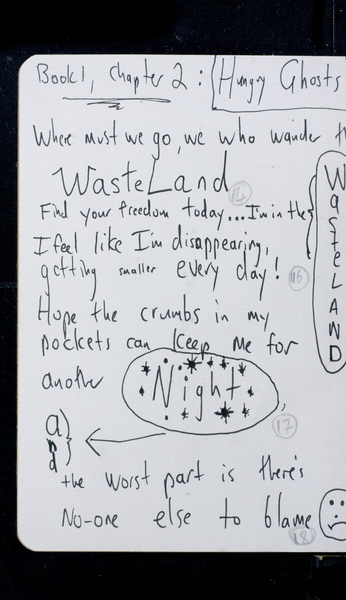 Book 1, Chapter 2: Hungry Ghosts
Where must we go, we who wander th
WasteLand
14
Find your freedom today... I'm in the
WasteLAND
I feel like I'm disappearing,
getting smaller every day!
16
Hope the crumbs in my
pockets can keep me for
another Night,
17
and
the worst part is there's
No-one else to blame
18